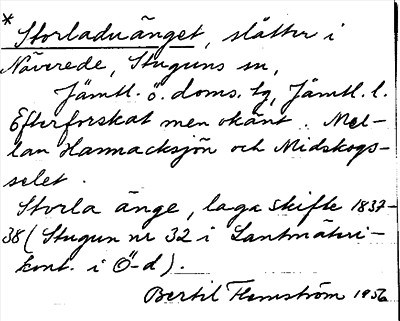 * Storladuänget, slåtter i
Näverede, Stuguns sn,
Jämtl. ö. doms. tg, Jämtl. l.
Efterforskat men okänt. Mel-
lan Hannacksjön och Midskogs-
selet.
Storla änge, laga skifte 1837-
38 (Stugun nr 32 i Lantmäteri-
kont. i Ö-d).
Bertil Flemström 1956